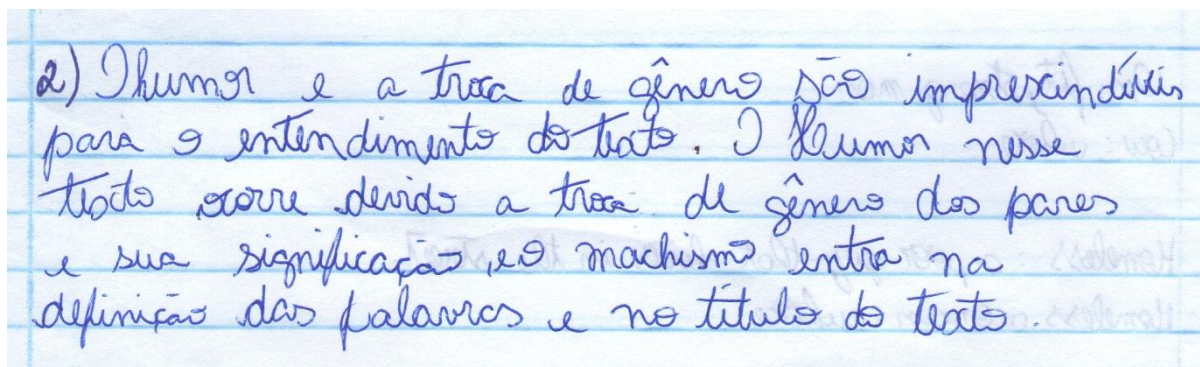 2) O humor e a troca de gênero são imprescindíveis
para o entendimento do texto. O Humor nesse
texto ocorre devido a troca de gênero dos pares
e sua significação, e o machismo entra na
definição das palavras e no título do texto.